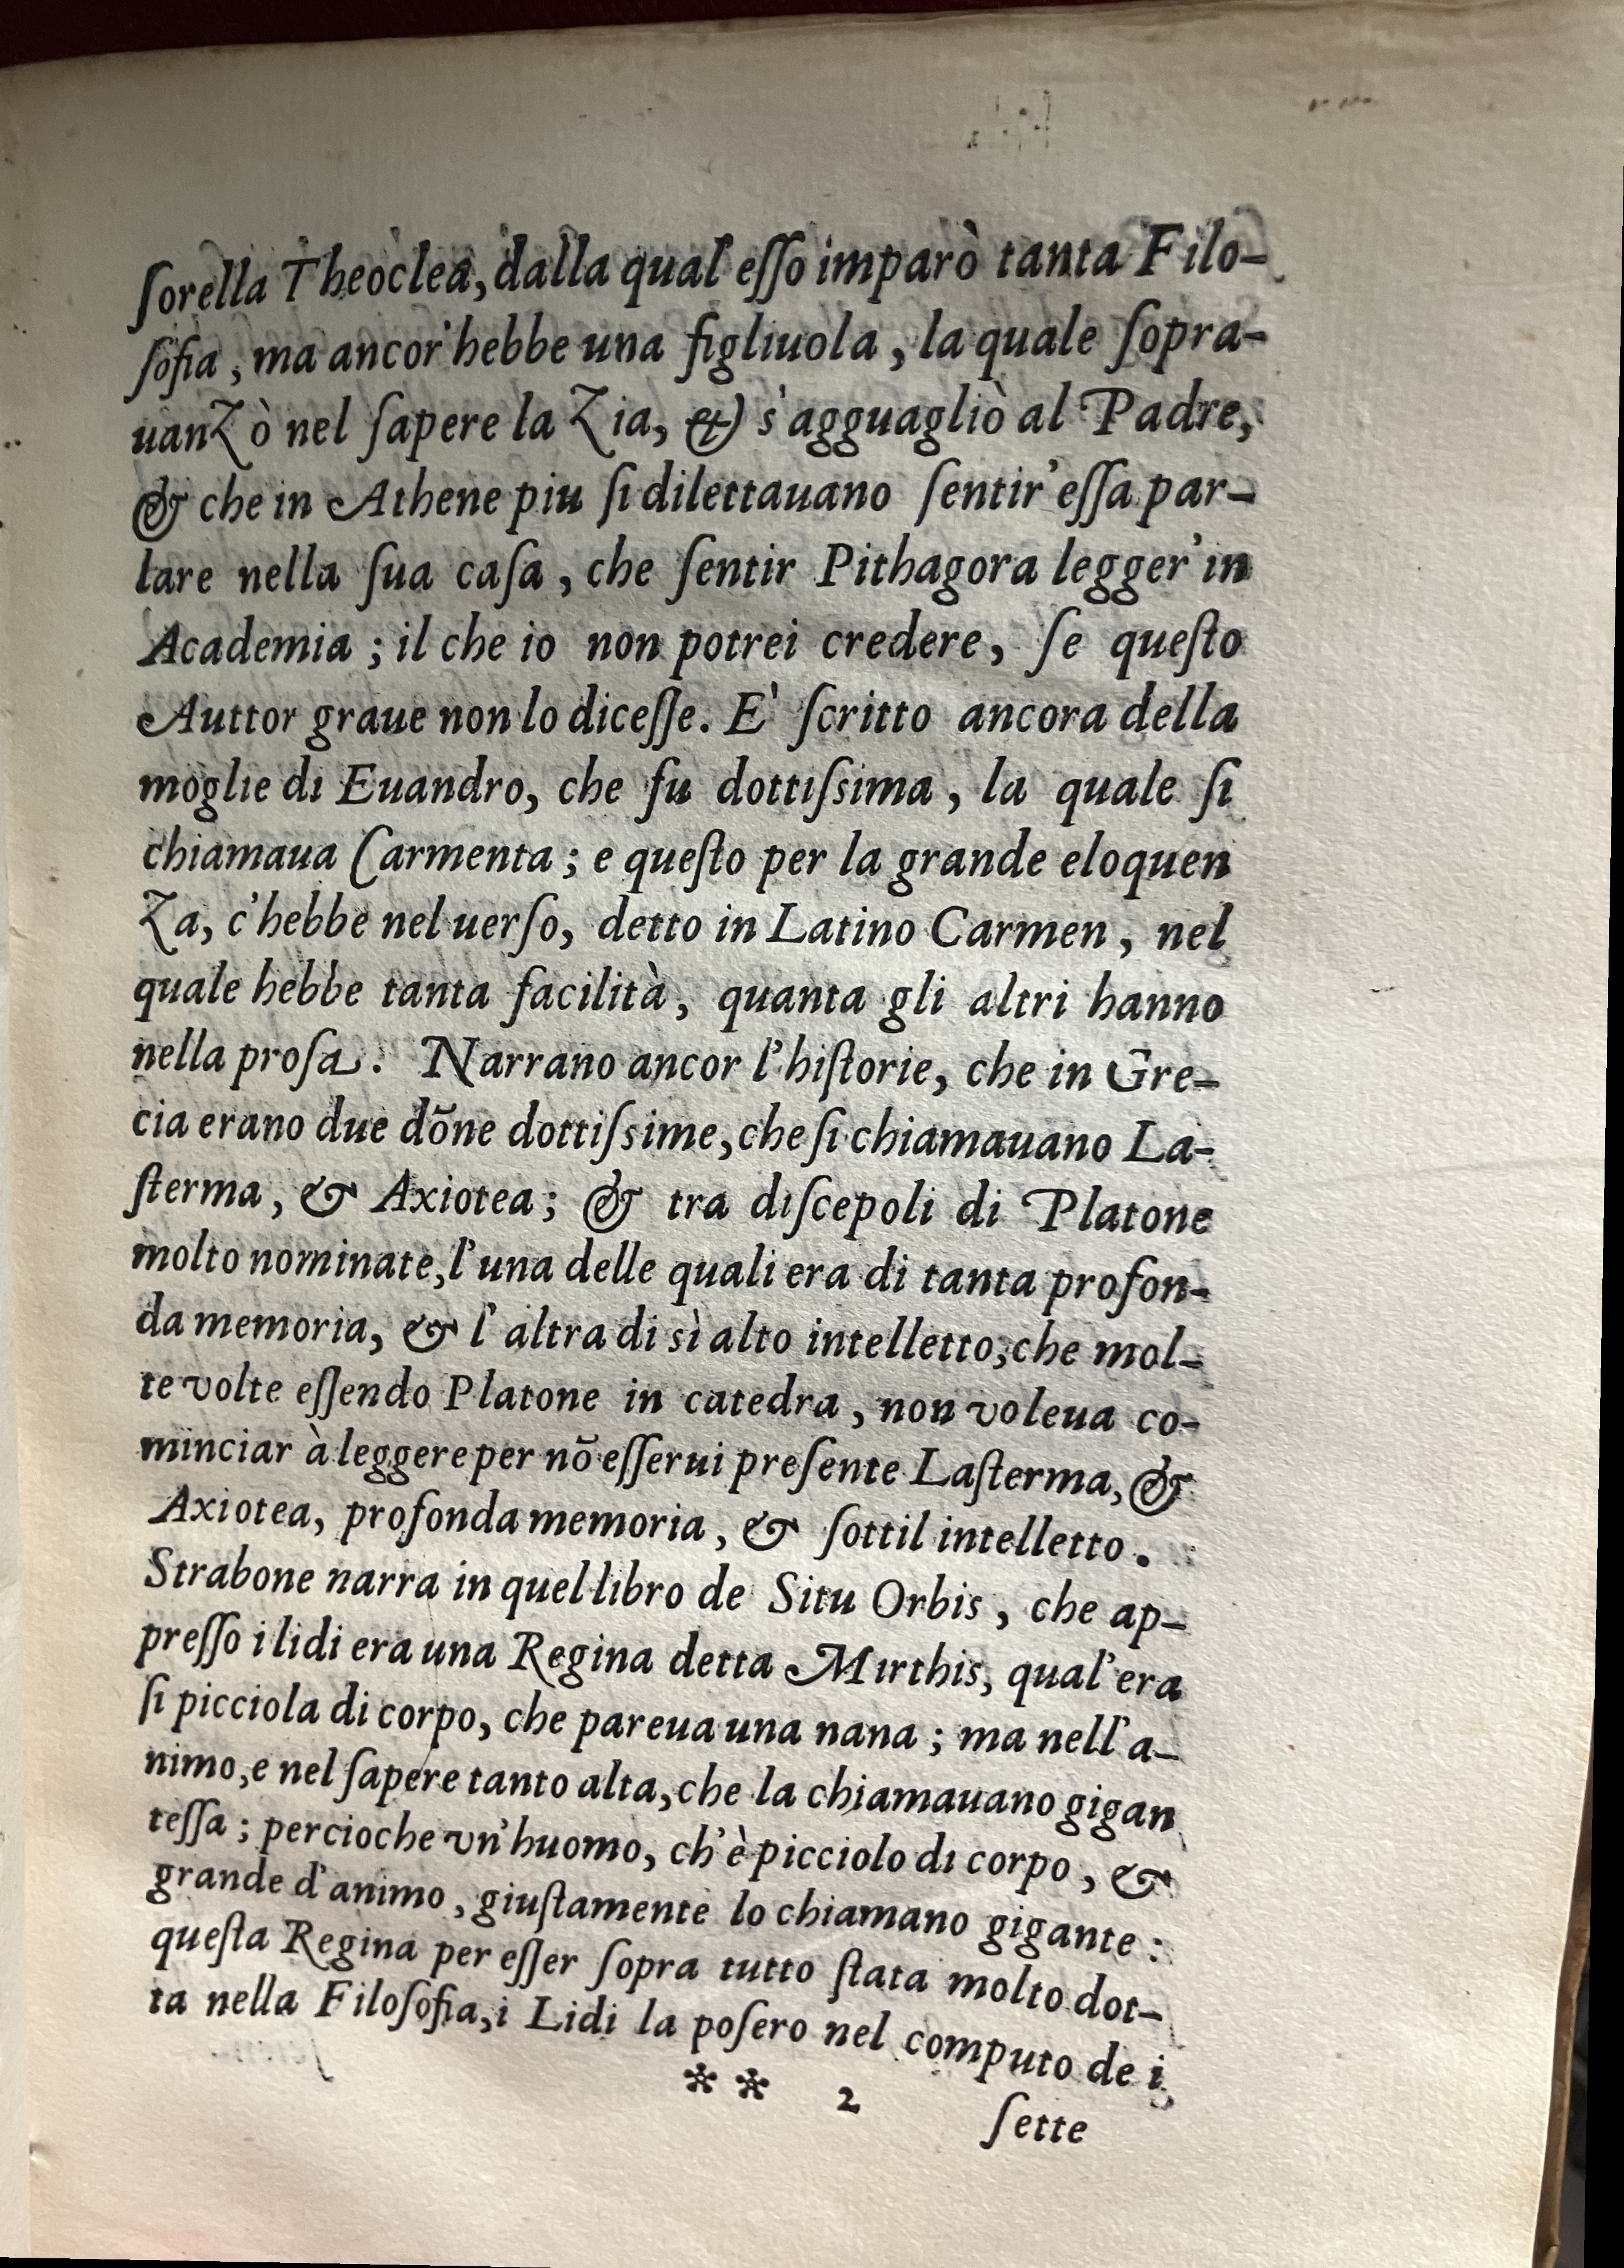 ſorella Theoclea, dalla qual' eſſo imparò tanta Filo-
ſofia, ma ancor' hebbe una figliuola, la quale ſopra-
uanzò nel ſapere la Zia, & s'agguagliò al Padre,
& che in Athene piu ſi dilettauano ſentir' eſſa par-
lare nella ſua caſa, che ſentir Pithagora legger' in
Academia; il che io non potrei credere, ſe queſto
Auttor graue non lo diceſſe. E' ſcritto ancora della
moglie di Euandro, che fu dottiſsima, la quale ſi
chiamaua Carmenta; e queſto per la grande eloquen
za, c'hebbe nel uerſo, detto in Latino Carmen, nel
quale hebbe tanta facilità, quanta gli altri hanno
nella proſa. Narrano ancor l'hiſtorie, che in Gre-
cia erano due dõne dottiſsime, che ſi chiamauano La-
ſterma, & Axiotea; & tra diſcepoli di Platone
molto nominate, l'una delle quali era di tanta profon-
da memoria, & l'altra di sì alto intelletto, che mol-
te volte eſſendo Platone in catedra, non voleua co-
minciar à leggere per nõ eſſerui preſente Laſterma, &
Axiotea, profonda memoria, & ſottil intelletto.
Strabone narra in quel libro de Situ Orbis, che ap-
preſſo i lidi era una Regina detta Mirthis, qual'era
ſi picciola di corpo, che pareua una nana; ma nell'a-
nimo, e nel ſapere tanto alta, che la chiamauano gigan
teſſa; percioche vn'huomo, ch'è picciolo di corpo, &
grande d'animo, giuſtamente lo chiamano gigante:
queſta Regina per eſſer ſopra tutto ſtata molto dot-
ta nella Filoſofia, i Lidi la poſero nel computo de i
** 2
ſette